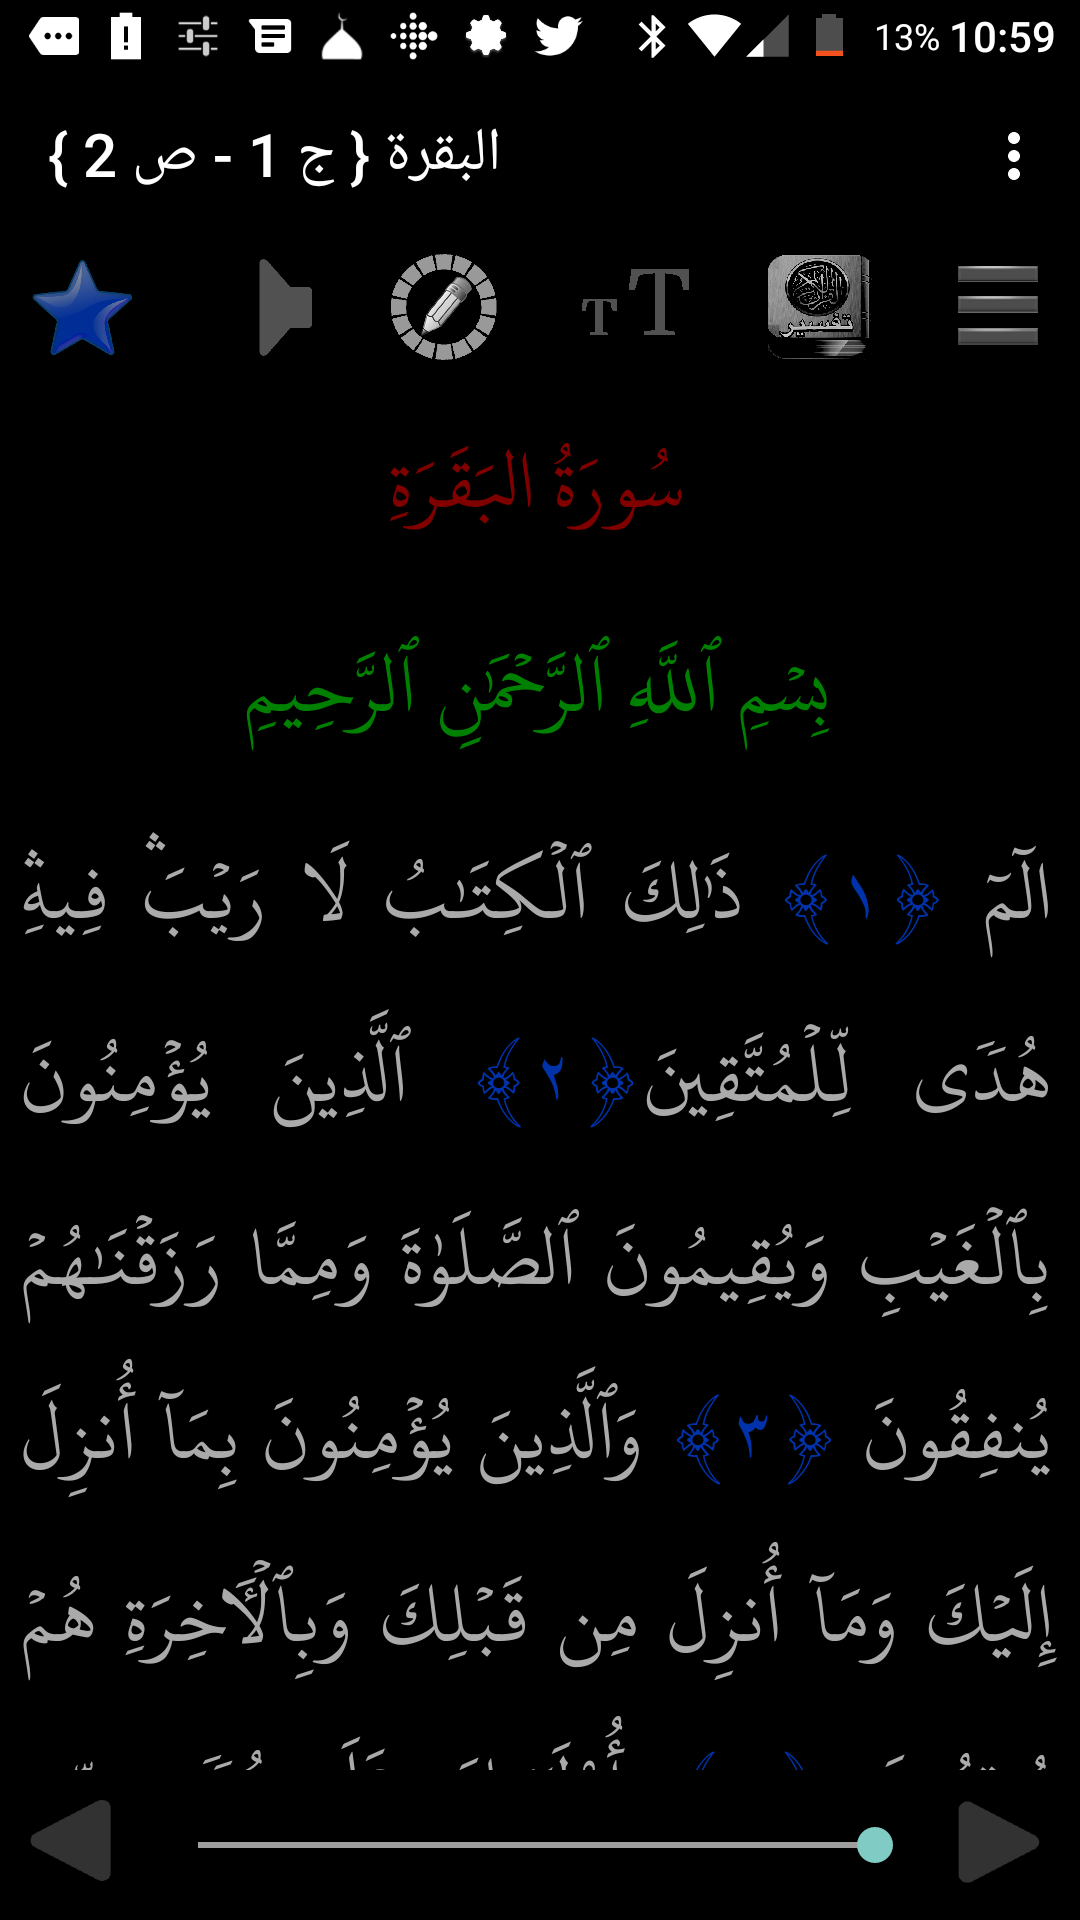 13% 10:59
البقرة { ج 1 - ص 2 }
T T
تفسير
سُورَةُ البَقَرَةِ
بِسْمِ ٱللَّهِ ٱلرَّحْمَٰنِ ٱلرَّحِيمِ
الٓمٓ ﴿١﴾ ذَٰلِكَ ٱلْكِتَـٰبُ لَا رَيْبَ ۛ فِيهِ ۛ
هُدًى لِّلْمُتَّقِينَ ﴿٢﴾ ٱلَّذِينَ يُؤْمِنُونَ
بِٱلْغَيْبِ وَيُقِيمُونَ ٱلصَّلَوٰةَ وَمِمَّا رَزَقْنَـٰهُمْ
يُنفِقُونَ ﴿٣﴾ وَٱلَّذِينَ يُؤْمِنُونَ بِمَآ أُنزِلَ
إِلَيْكَ وَمَآ أُنزِلَ مِن قَبْلِكَ وَبِٱلْـَٔاخِرَةِ هُمْ